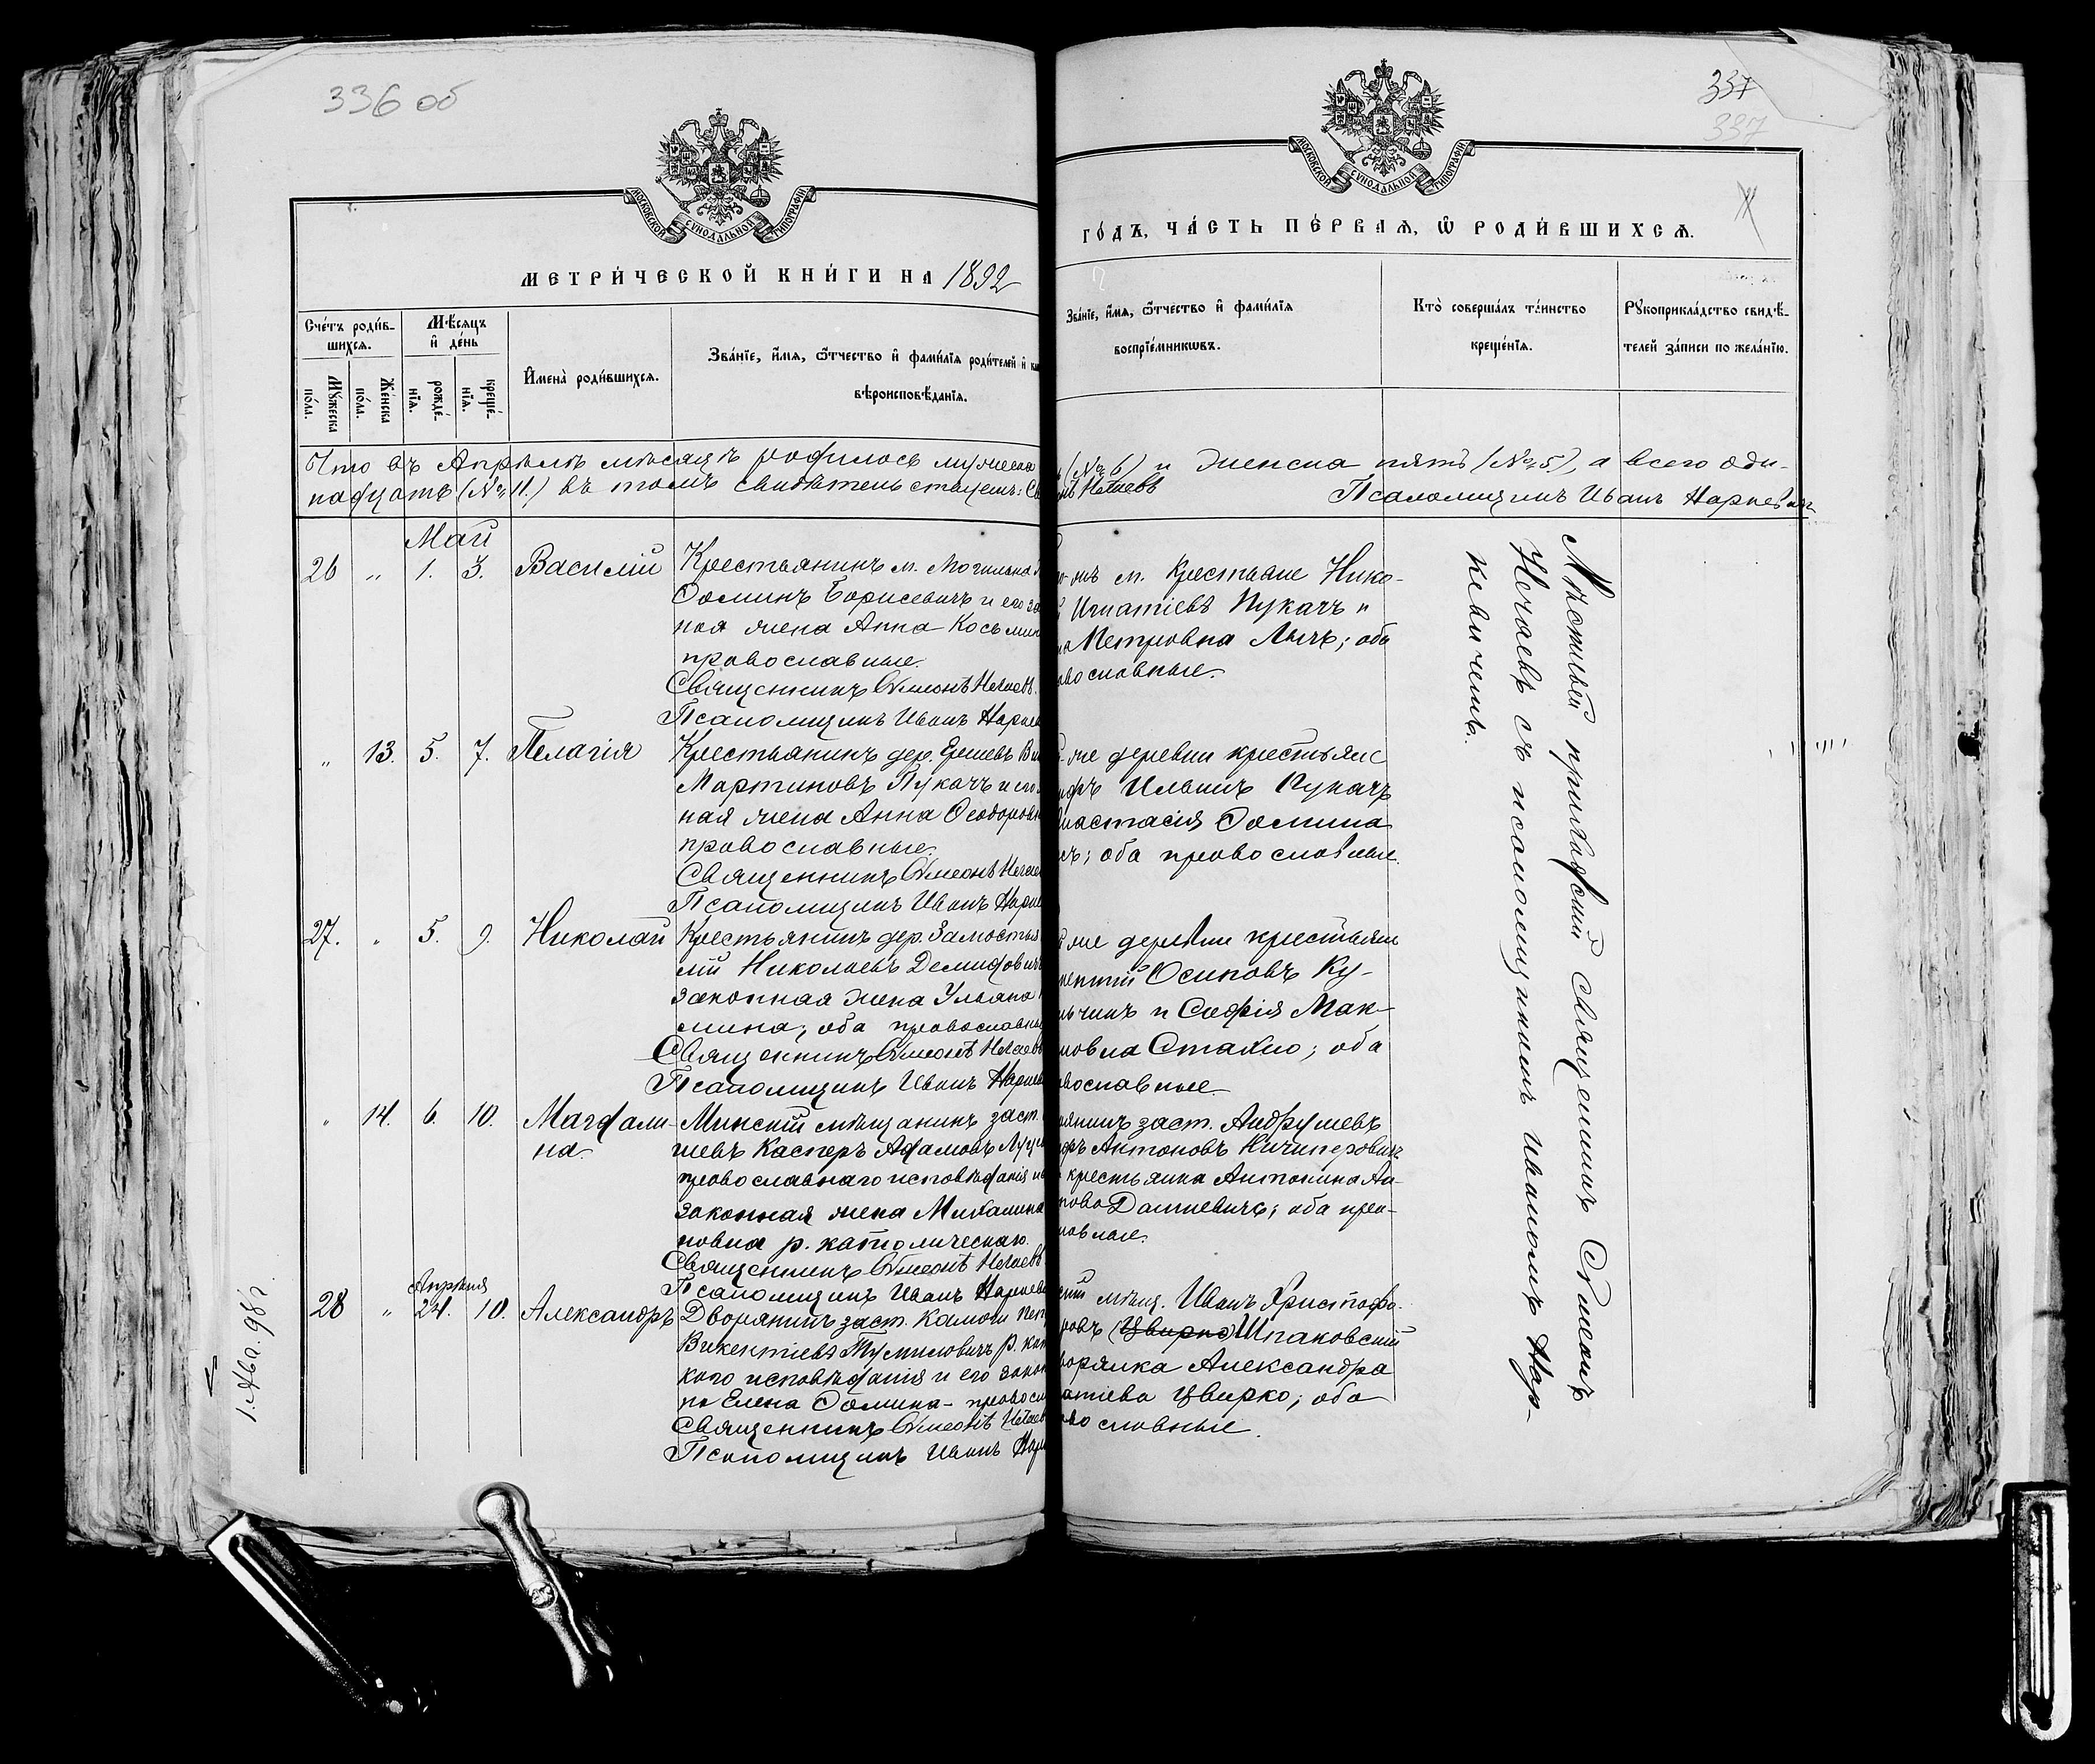 336 об
МОСКОВСКОЙ СѴНОДАЛЬНОЙ ТИПОГРАФІИ
МЕТРИ́ЧЕСКОЙ КНИ́ГИ НА 1892
Сче́тъ роди́в-
шихсѧ.
Мꙋ́жеска
по́ла.
Же́нска
по́ла.
Мѣ́сѧцъ
и҆ де́нь
рожде́-
нїѧ.
креще́-
нїѧ.
И҆мена̀ роди́вшихсѧ.
Зва́нїе, и҆́мѧ, ѻ҆́тчество и҆ фами́лїѧ роди́телей и҆
вѣроисповѣ́данїѧ.
Что въ Апрѣлѣ мѣсяцѣ родилось мужеска
надцать (№ 11.) въ томъ свидѣтельствуемъ:
Май
26 „ 1. 3. Василій Крестьянинъ м. Могильна
Ѳоминъ Борисевичъ и его за
ная жена Анна Косьмин
православные.
Священникъ Сѵмеонъ Нечаевъ.
Псаломщикъ Иванъ Нарке
„ 13. 5. 7. Пелагія Крестьянинъ дер. Ершевъ
Мартиновъ Пукачъ и его
ная жена Анна Ѳеодоровн
православные.
Священникъ Сѵмеонъ Нечае
Псаломщикъ Иванъ Нарке
27. „ 5. 9. Николай Крестьянинъ дер. Замостья
лій Николаевъ Демидович
законная жена Ульяна
мина; оба православны
Священникъ Сѵмеонъ Нечаевъ
Псаломщикъ Иванъ Нарке
„ 14. 6. 10. Магдали- Минскій мѣщанинъ заст.
на. шевъ Касперъ Адамовъ
православнаго исповѣданія и
законная жена Михалина
новна р. католическаго.
Священникъ Сѵмеонъ Нечаевъ
Псаломщикъ Иванъ Нарке
Апрѣля
28 „ 24. 10. Александръ Дворянинъ заст. Камоги
Викентіевъ Тумиловичъ р. ка
каго исповѣданія и его закон
на Елена Ѳомина - правосл
Священникъ Сѵмеонъ Нечаев
Псаломщикъ Иванъ Нар
337
337
МОСКОВСКОЙ СѴНОДАЛЬНОЙ ТИПОГРАФІИ
ГО́ДЪ, ЧА́СТЬ ПЕ́РВАѦ, Ѡ҆ РОДИ́ВШИХСѦ.
Зва́нїе, и҆́мѧ, ѻ҆́тчество и҆ фами́лїѧ
воспрїе́мникѡвъ.
Кто̀ соверша́лъ та́инство
креще́нїѧ.
Рꙋкоприкла́дство свидѣ́-
телей за́писи по жела́нїю.
(№ 6) и женска пять (№ 5), а всего оди-
Нечаевъ Псаломщикъ Иванъ Наркевичъ
м. крестьяне Нико-
Игнатіевъ Пукачъ и
Петровна Лычъ; оба
вославные.
же деревни крестьяне
Ильинъ Пукачъ
настасія Ѳомина
оба православные.
же деревни крестьяне
Осиповъ Ку-
ьчинъ и Софія Мак-
мовна Стахно; оба
вославные.
янинъ заст. Андрушевъ
Антоновъ Ничипоровичъ
крестьянка Антонина Ан-
нова Дашкевичъ; оба пра-
вославные.
мѣщ. Иванъ Христофо-
ровъ (Цвирко) Шпаковскій
ворянка Александра
атіева Цвирко; оба
вославные.
Мѣстный приходскій Священникъ Сѵмеонъ
Нечаевъ съ псаломщикомъ Иваномъ Нар-
кевичемъ.